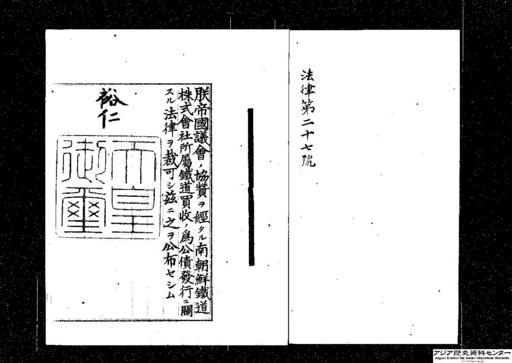 法律第二十七號
朕帝國議會ノ協賛ヲ經タル南朝鮮鐵道
株式會社所屬鐵道買收ノ爲公債發行ニ關
スル法律ヲ裁可シ茲ニ之ヲ公布セシム
裕仁
天皇
御璽
アジア歴史資料センター
Japan Center for Asian Historical Records